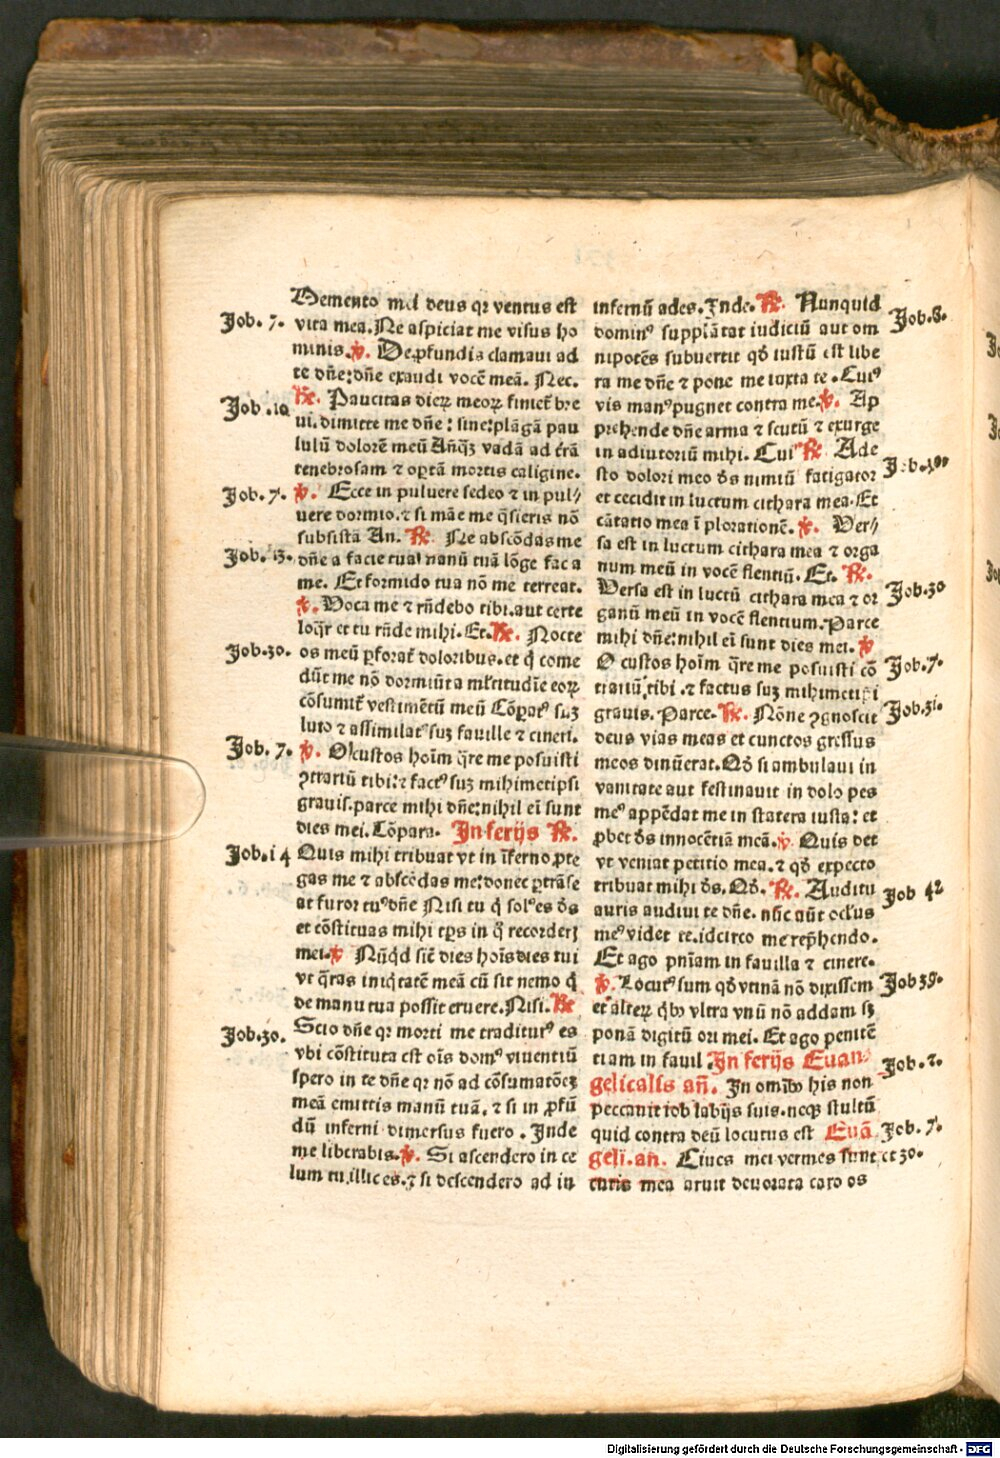 Memento mei deus qꝛ ventus est
Job. 7. vita mea. Ne aspiciat me visus ho
minis. ℣. De ꝓfundis clamaui ad
te dñe: dñe exaudi vocē meā. Nec.
℟. Paucitas dieꝝ meoꝝ finiet᷑ bre
Job. 10 ui. dimitte me dñe : sine: plāgā pau
lulū dolorē meū Añqꝫ vadā ad t̄rā
tenebrosam ⁊ oꝑtā mortis caligine.
Job. 7. ℣. Ecce in puluere sedeo ⁊ in pul⸗
uere dormio. ⁊ si māe me q̄sieris nō
subsistā An. ℟. Ne abscōdas me
Job. 13. dñe a facie tua manū tuā lōge fac a
me. Et formido tua nō me terreat.
℣. Voca me ⁊ rñdebo tibi. aut certe
loq̄r et tu rñde mihi. Et. ℟. Nocte
Job. 30. os meū ꝑforat᷑ doloribus. et q̇ come
dūt me nō dormiūt a ml̄titudīe eoꝝ
cōsumit᷑ vestimētū meū Cōꝑatꝰ suꝫ
luto ⁊ assimilatꝰ suꝫ fauille ⁊ cineri.
Job. 7. ℣. O custos hoīm q̄re me posuisti
ꝯtrariū tibi: ⁊ factꝰ suꝫ mihimetipsi
grauis. parce mihi dñe: nihil eī sunt
dies mei. Cōpara. In ferijs ℟.
Job. 14 Quis mihi tribuat vt in īferno ꝓte
gas me ⁊ abscōdas me: donec ꝑtrāse
at furor tuꝰ dñe Nisi tu q̇ solꝰ es ds̄
et cōstituas mihi tp̄s in q̄ recorderꝫ
mei. ℣ Nūq̇d sic̄ dies hoīs dies tui
vt q̄ras iniq̇tatē meā cū sit nemo q̇
de manu tua possit eruere. Nisi. ℟
Job. 30. Scio dñe qꝛ morti me traditurꝰ es
vbi cōstituta est oīs domꝰ viuentiū
spero in te dñe qꝛ nō ad cōsumatōeꝫ
meā emittis manū tuā. ⁊ si in ꝓfū
dū inferni dimersus fuero. Inde
me liberabis. ℣. Si ascendero in ce
lum tu illic es. ⁊ si descendero ad in
infernū ades. Inde. ℟. Nunquid Job. 8.
dominꝰ supplātat iudiciū aut om
nipotēs subuertit qd̄ iustū est libe
ra me dñe ⁊ pone me iuxta te. Cuiꝰ
vis manꝰ pugnet contra me. ℣. Ap
prehende dñe arma ⁊ scutū ⁊ exurge
in adiutoriū mihi. Cuiꝰ ℟. Ade
sto dolori meo ds̄ nimiū fatigator
et cecidit in luctum cithara mea. Et
cātatio mea ī plorationē. ℣. Ver⸗
sa est in luctum cithara mea ⁊ orga
num meū in vocē flentiū. Et. ℟.
Versa est in luctū cithara mea ⁊ or Job. 30
ganū meū in vocē flentium. Parce
mihi dñe: nihil eī sunt dies mei. ℣
O custos hoīm q̄re me posuisti cō Job. 7.
trariū tibi. ⁊ factus suꝫ mihimetipsi
grauis. Parce. ℟. Nōne ꝯgnoscit Job. 31.
deus vias meas et cunctos gressus
meos dinūerat. Qd̄ si ambulaui in
vanitate aut festinauit in dolo pes
meꝰ appēdat me in statera iusta: et
ꝓbet ds̄ innocētiā meā. ℣. Quis det
vt veniat petitio mea. ⁊ qd̄ expecto
tribuat mihi ds̄. Qd̄. ℟. Auditu Job 42
auris audiui te dñe. nūc aūt oclꝰus
meꝰ videt te. idcirco me rep̄hendo.
Et ago pn̄iam in fauilla ⁊ cinere.
℣. Locutꝰ sum qd̄ vtinā nō dixissem Job 39.
et alteꝝ q̇bꝰ vltra vnū nō addam sꝫ
ponā digitū ori mei. Et ago penitē
tiam in fauil. In ferijs Euan⸗ Job. 2.
gelicalis añ. In omībꝰ his non
peccauit iob labijs suis. neqꝫ stultū
quid contra deū locutus est Euā Job. 7.
geli. añ. Ciues mei vermes sunt et 30.
cutis mea aruit deuorata caro os
Digitalisierung gefördert durch die Deutsche Forschungsgemeinschaft - DFG